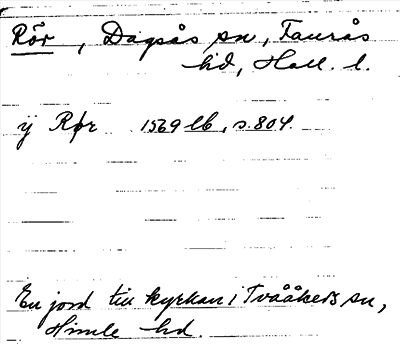 Rör, Dagsås sn, Faurås
hd, Hall. l.
ij Rør 1569 lb, s. 804.
En jord till kyrkan i Tvååkers sn,
Himle hd.